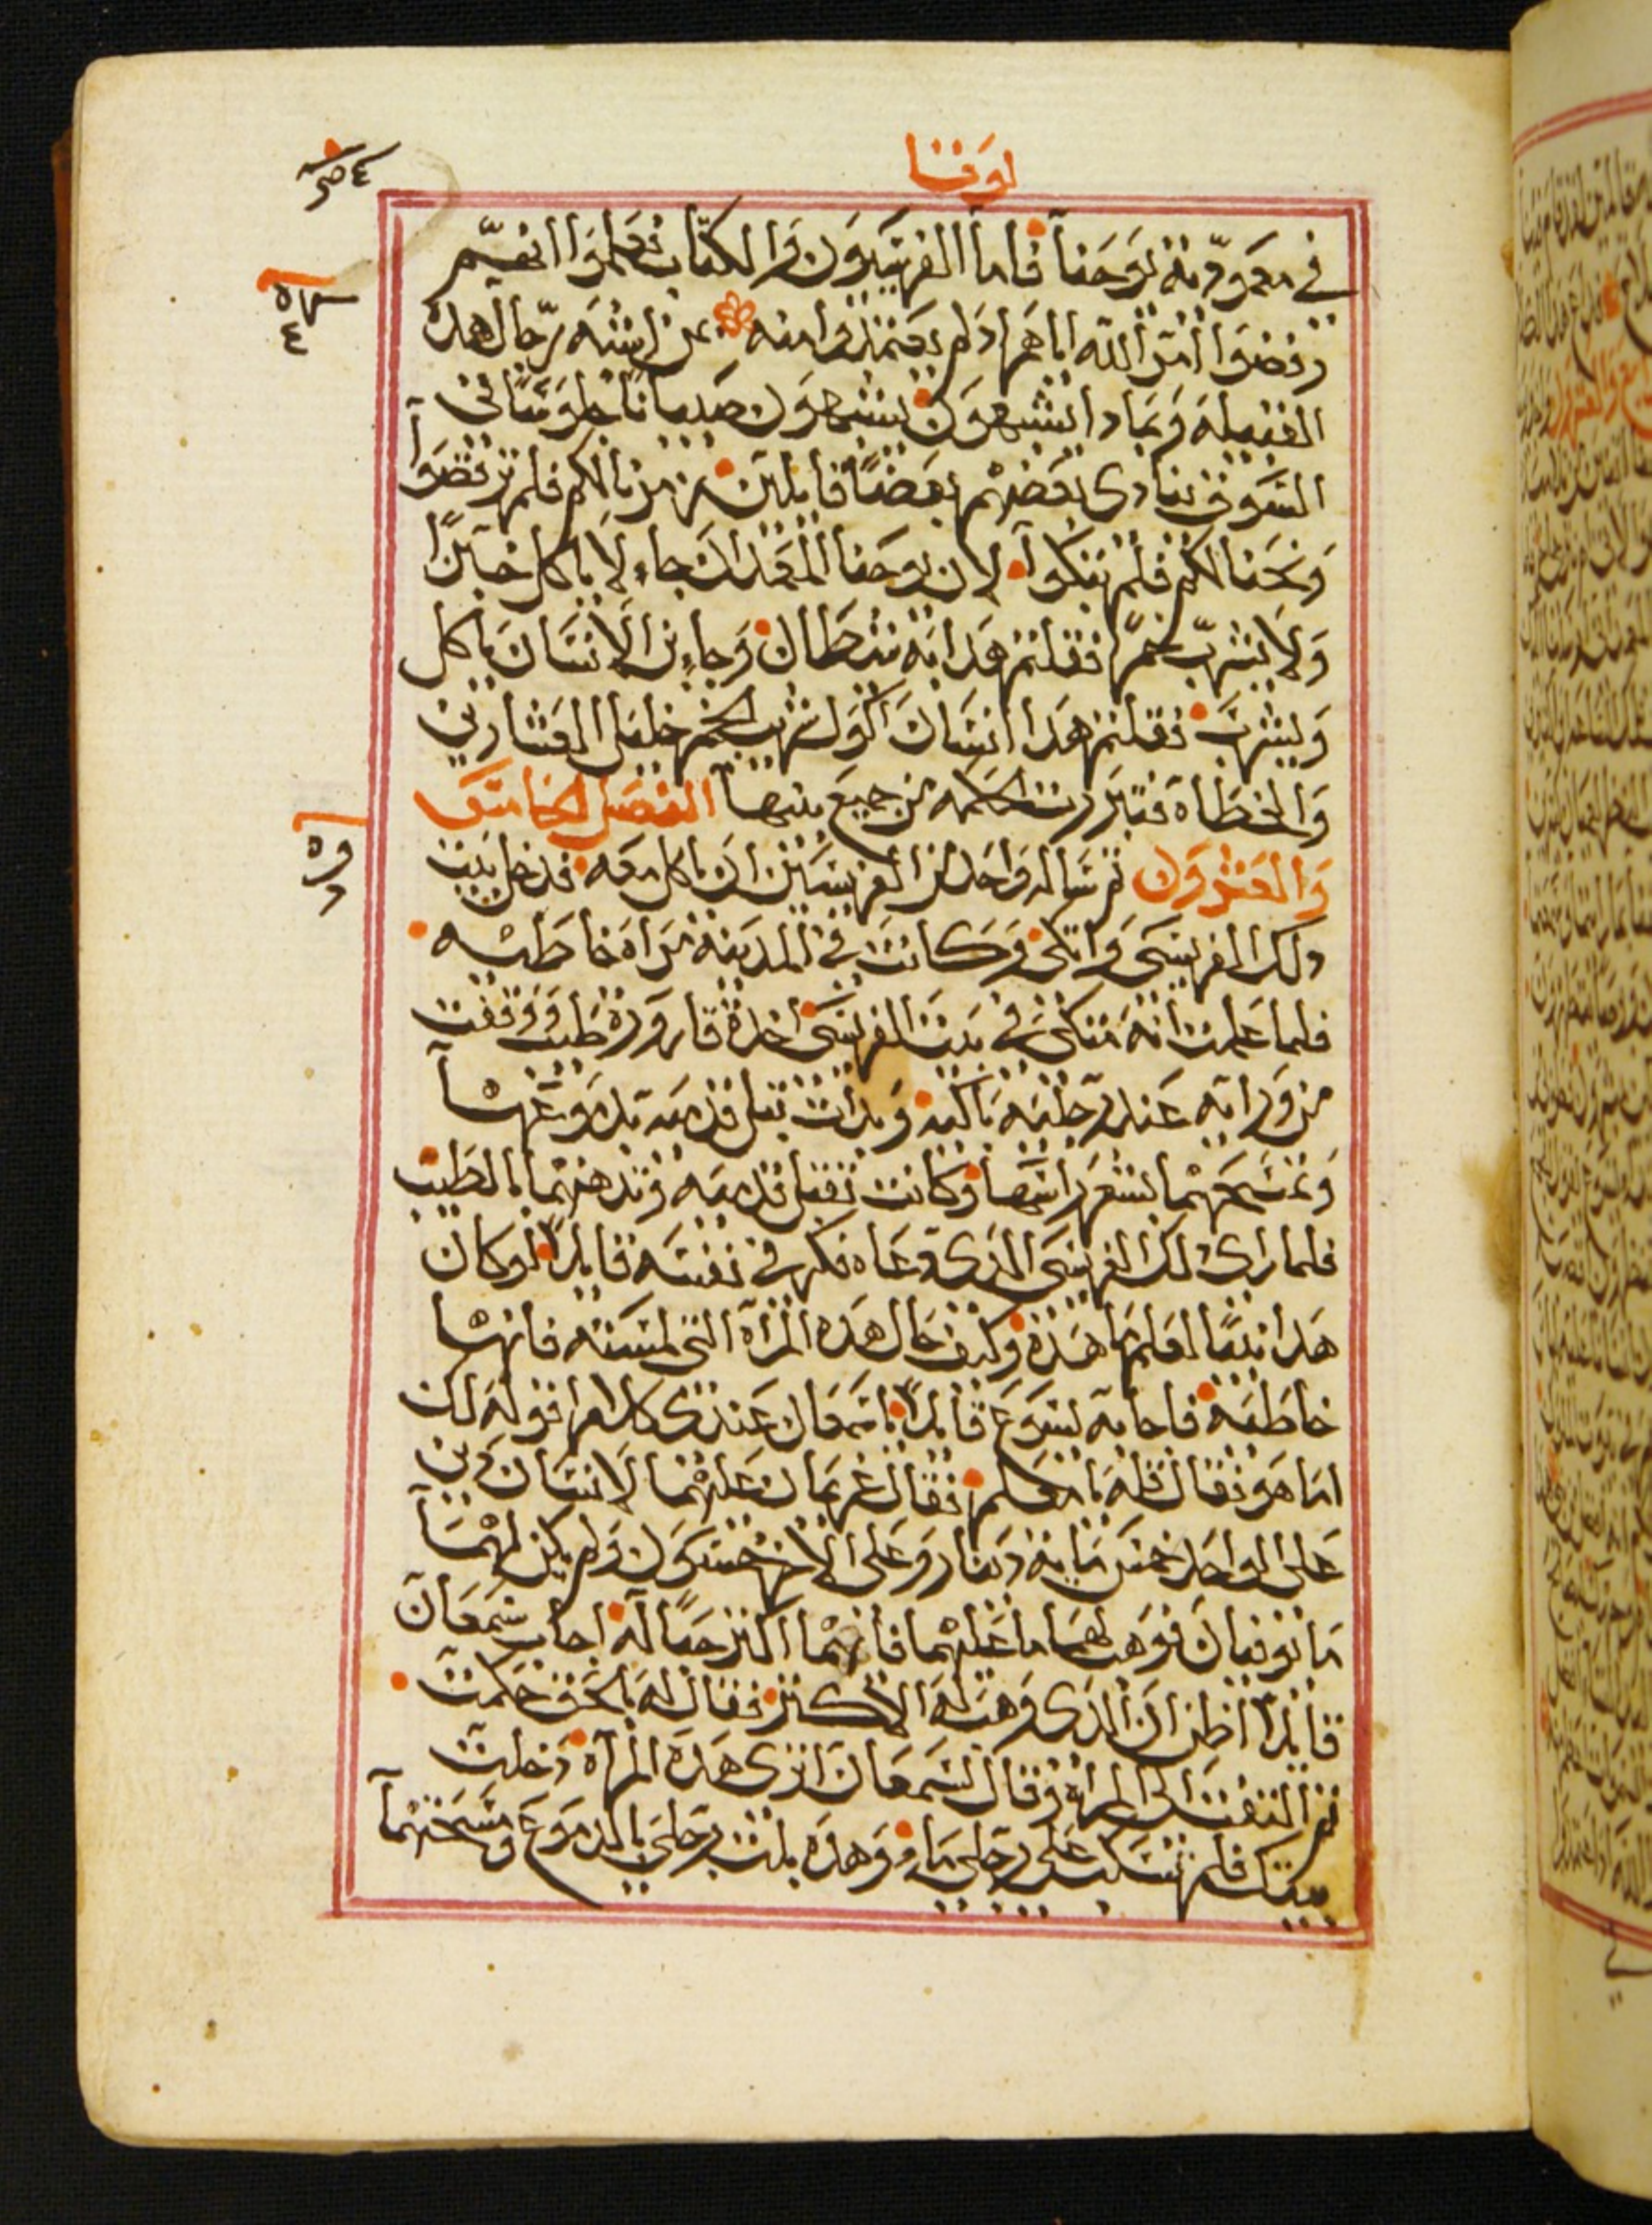 لوقا
في معمودية يوحنا فاما الفريسيون والكتاب فعلموا انفسهم
رفضوا امر الله اياهم اذ لم يعتمدوا منه بمن اشبه رجال هذه
القبيله وبماذا يشبهون يشبهون صبيانا جلوسا في
السوق ينادي بعضهم بعضا قايلين زمرنا لكم فلم ترقصوا
ونحنا لكم فلم تبكوا لان يوحنا المعمدان جاء لا ياكل خبزا
ولا يشرب خمرا فقلتم هذا به شيطان وجاء بن الانسان ياكل
ويشرب فقلتم هذا انسان اكول شريب الخمر خليل العشارين
والخطاه فتبررت الحكمه من جميع بنيها الفصل الخامس
والعشرون ثم ساله واحد من الفريسيين ان ياكل معه فدخل بيت
ذلك الفريسي واتكى وكانت في المدينة مراه خاطيه
فلما علمت انه متكي في بيت الفريسي اخذة قارورة طيب ووقفت
من ورايه عند رجليه باكيه وبدات تبل قدميه بدموعها
وتمسحهما بشعر راسها وكانت تقبل قدميه وتدهنهما بالطيب
فلما راى ذلك الفريسي الذي دعاه فكر في نفسه قايلا لو كان
هذا نبيا لعلم ما هذه وكيف حال هذه المراة التي لمسته فانها
خاطيه فاجابه يسوع قايلا يا سمعان عندي كلام اقوله لك
اما هو فقال قله يا معلم فقال غريمان عليهما لانسان دين
على الواحد خمس ماية دينار وعلى الاخر خمسون ولم يكن لهما
ما يوفيان فوهب لهما ما عليهما فايهما اكثر حبا له اجاب سمعان
قايلا اظن ان الذي وهب له الاكثر فقال له بالحق حكمت
ثم التفت الى المراة وقال لسمعان اترى هذه المراه دخلت
بيتك فلم تسكب على رجلي ماء وهذه بلت رجلي بالدموع ومسحتهما